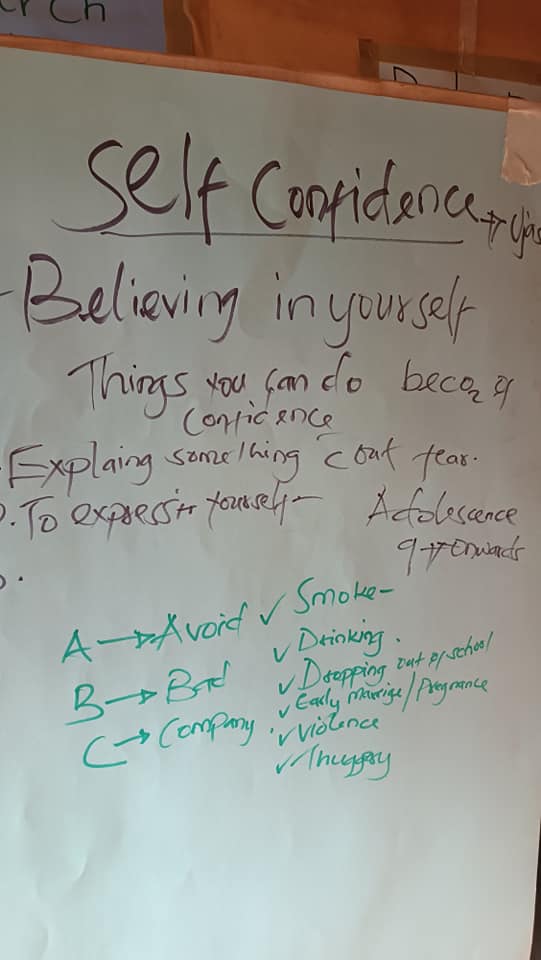 rch
Self Confidence
- Believing in yourself
Things you can do becoz of
confidence
- Explaing something c out fear.
. To express yourself -
Adolescence
9 → onwards
A → Avoid
B → Bad
C → Company.
✓ Smoke -
✓ Drinking.
✓ Dropping out of school
✓ Early marrige / Pregnance
✓ Violence
✓ Thuggery